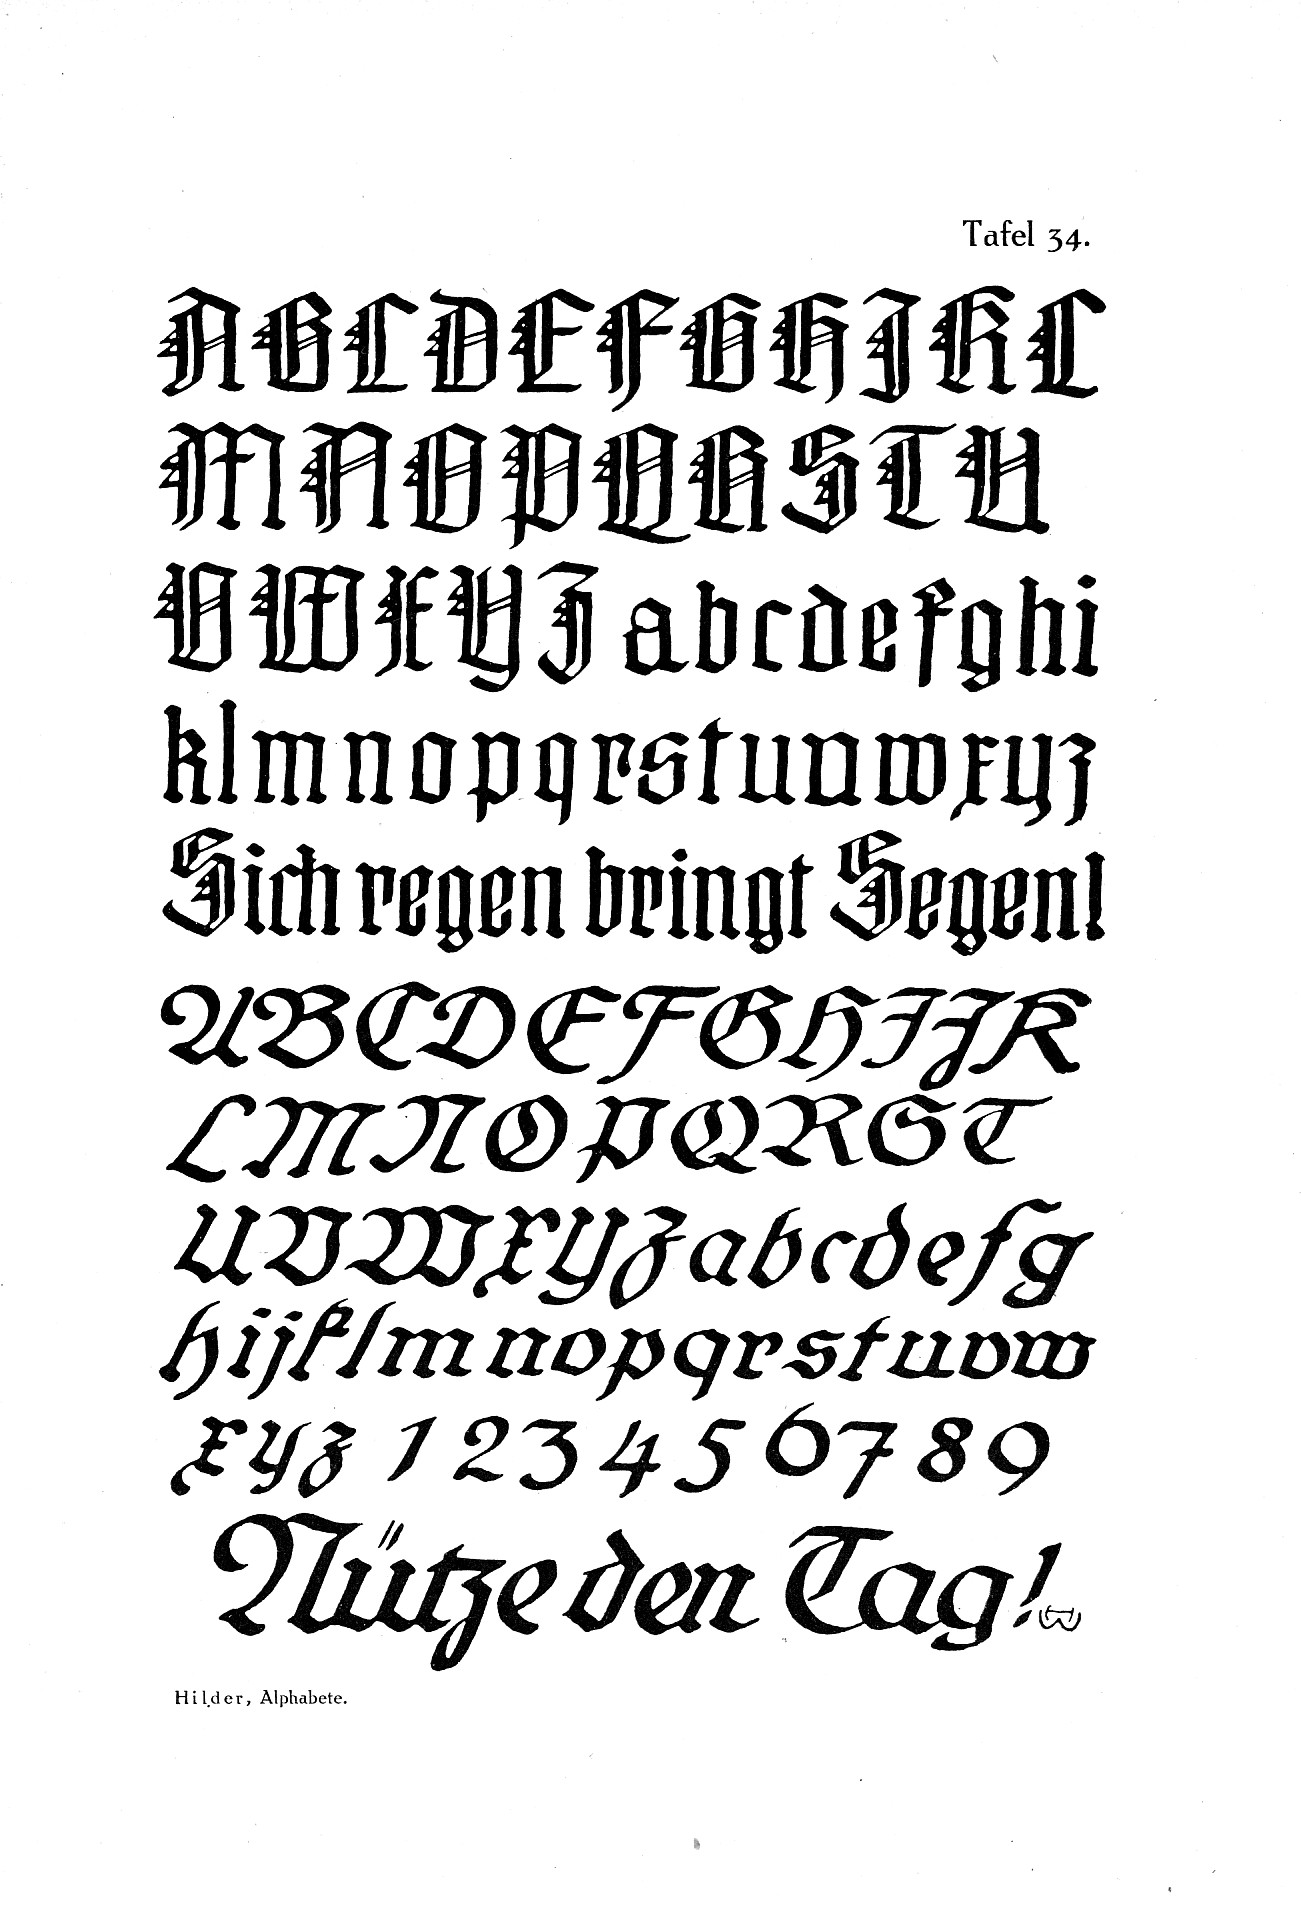 Tafel 34.
ABCDEFGHIKL
MNOPQRSTU
VWXYZ abcdefghi
klmnopqrstuvwxyz
Sich regen bringt Segen!
ABCDEFGHIJK
LMNOPQRST
UVWXYZ abcdefg
hijklmnopqrstuvw
xyz 123456789
Nütze den Tag!
Hilder, Alphabete.